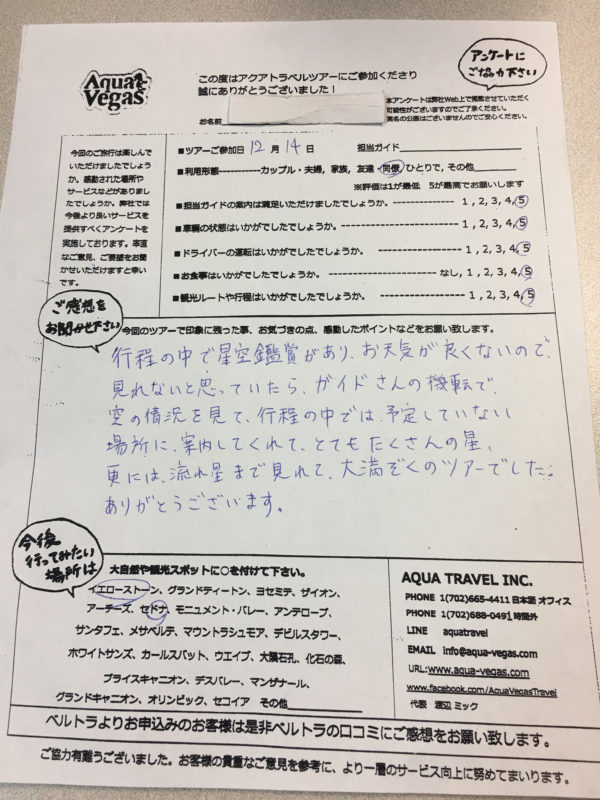 Aqua
Vegas
この度はアクアトラベルツアーにご参加くださり
誠にありがとうございました!
アンケートに
ご協力下さい
お名前
本アンケートは弊社Web上で掲載させていただく
可能性がございますのでご了承ください。
実名の公表はございませんのでご安心ください。
今回のご旅行は楽しんで
いただけましたでしょう
か。感動された場所や
サービスなどがありまし
たでしょうか。弊社では
今後より良いサービスを
提供すべくアンケートを
実施しております。率直
なご意見、ご要望をお聞
かせいただけますと幸い
です。
■ツアーご参加日 12 月 14 日 担当ガイド
■利用形態------------カップル・夫婦, 家族, 友達・同僚, ひとりで, その他
※評価は1が最低 5が最高でお願いします
■担当ガイドの案内は満足いただけましたでしょうか。---------------- 1, 2, 3, 4, 5
■車輌の状態はいかがでしたでしょうか。-------------------------- 1, 2, 3, 4, 5
■ドライバーの運転はいかがでしたでしょうか。 ------------------- 1, 2, 3, 4, 5
■お食事はいかがでしたでしょうか。 ----------------------- なし, 1, 2, 3, 4, 5
■観光ルートや行程はいかがでしたでしょうか。-------------------- 1, 2, 3, 4, 5
ご感想を
お聞かせ下さい
今回のツアーで印象に残った事、お気づきの点、感動したポイントなどをお願い致します。
行程の中で星空鑑賞があり、お天気が良くないので、
見れないと思っていたら、ガイドさんの機転で、
空の情況を見て、行程の中では、予定していない
場所に、案内してくれて、とてもたくさんの星、
更には、流れ星まで見れて、大満ぞくのツアーでした。
ありがとうございます。
今後
行ってみたい
場所は
大自然や観光スポットに○を付けて下さい。
イエローストーン、グランドティートン、ヨセミテ、ザイオン、
アーチーズ、セドナ、モニュメント・バレー、アンテロープ、
サンタフェ、メサベルテ、マウントラシュモア、デビルスタワー、
ホワイトサンズ、カールスバット、ウエイブ、大隕石孔、化石の森、
ブライスキャニオン、デスバレー、マンザナール、
グランドキャニオン、オリンピック、セコイア その他
AQUA TRAVEL INC.
PHONE 1(702)665-4411 日本語 オフィス
PHONE 1(702)688-0491 時間外
LINE aquatravel
EMAIL info@aqua-vegas.com
URL:www.aqua-vegas.com
www.facebook.com/AquaVegasTravel
代表 渡辺 ミック
ベルトラよりお申込みのお客様は是非ベルトラの口コミにご感想をお願い致します。
ご協力有難うございました。お客様の貴重なご意見を参考に、より一層のサービス向上に努めてまいります。